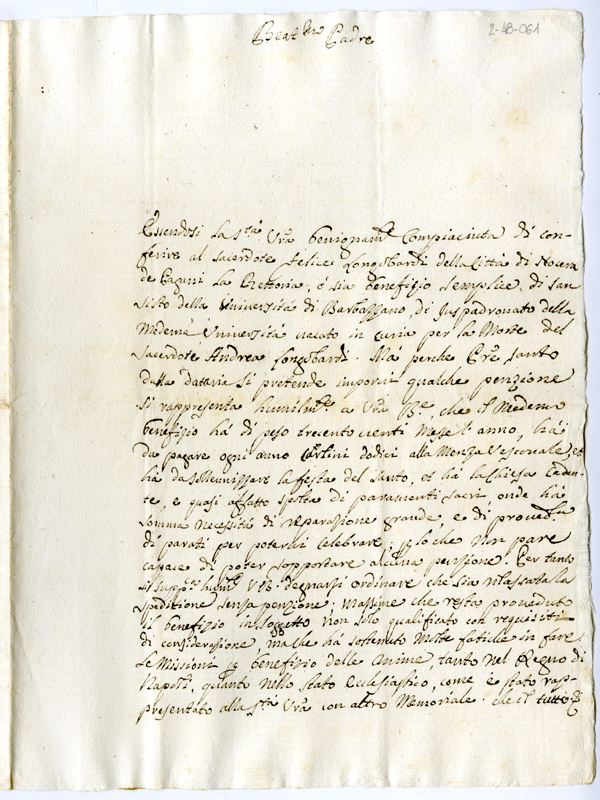 2-48-061
Beat.mo Padre
Essendosi la S.tà Vra benignam.te Compiaciuta di con-
ferire al sacerdote felice Longobardi della Città di Nocera
de Pagani la Rettoria, ó sia benefizio semplice, di san
sisto della Università di Barbazzano di Juspadronato della
Medema Università vacato in curia per la Morte del
sacerdote Andrea Longobardi. Mà perche P.re santo
dalla dataria si pretende imporvi qualche penzione
si rappresenta humilm.te a Vra B.ne, che il Medemo
benefizio hà di peso trecento venti Messe l'anno, hà
da pagare ogni anno Carlini dodici alla Menza Vescovale, et
hà da sollennizzare la festa del santo, et hà la Chiesa caden-
te, e quasi affatto spolta di paramenti sacri, onde hà
somma necessità di reparazione grande, e di proved.la
di parati per potervi celebrare; per lo che non pare
capace di poter sopportare alcuna penzione. Per tanto
si supp.ca hum.te V.B. degnarsi ordinare che sia rilassata la
spedizione senza penzione; massime che resta proveduto
il benefizio in soggetto non solo qualificato con requisiti
di considerazione, ma che hà sostenuto Molte fatiche in fare
le Missioni in benefizio delle Anime, tanto nel Regno di
Napoli, quanto nello stato Ecclesiastico, come è stato rap-
presentato alla S.tà Vra con altro Memoriale. che il tutto